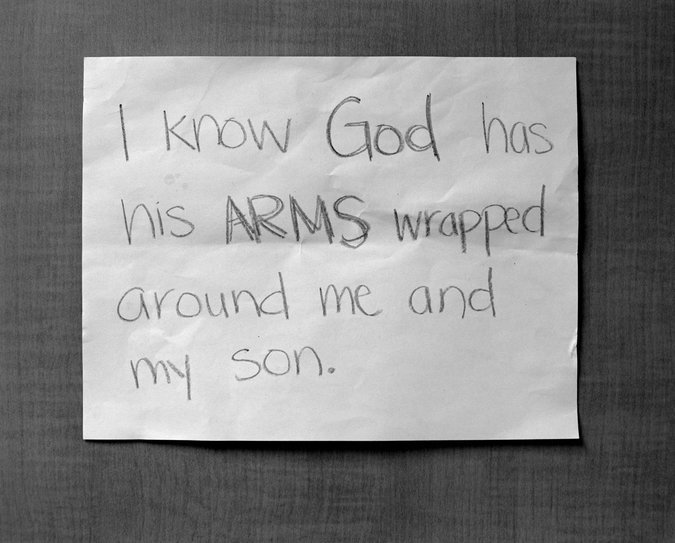 I know God has
his ARMS wrapped
around me and
my son.